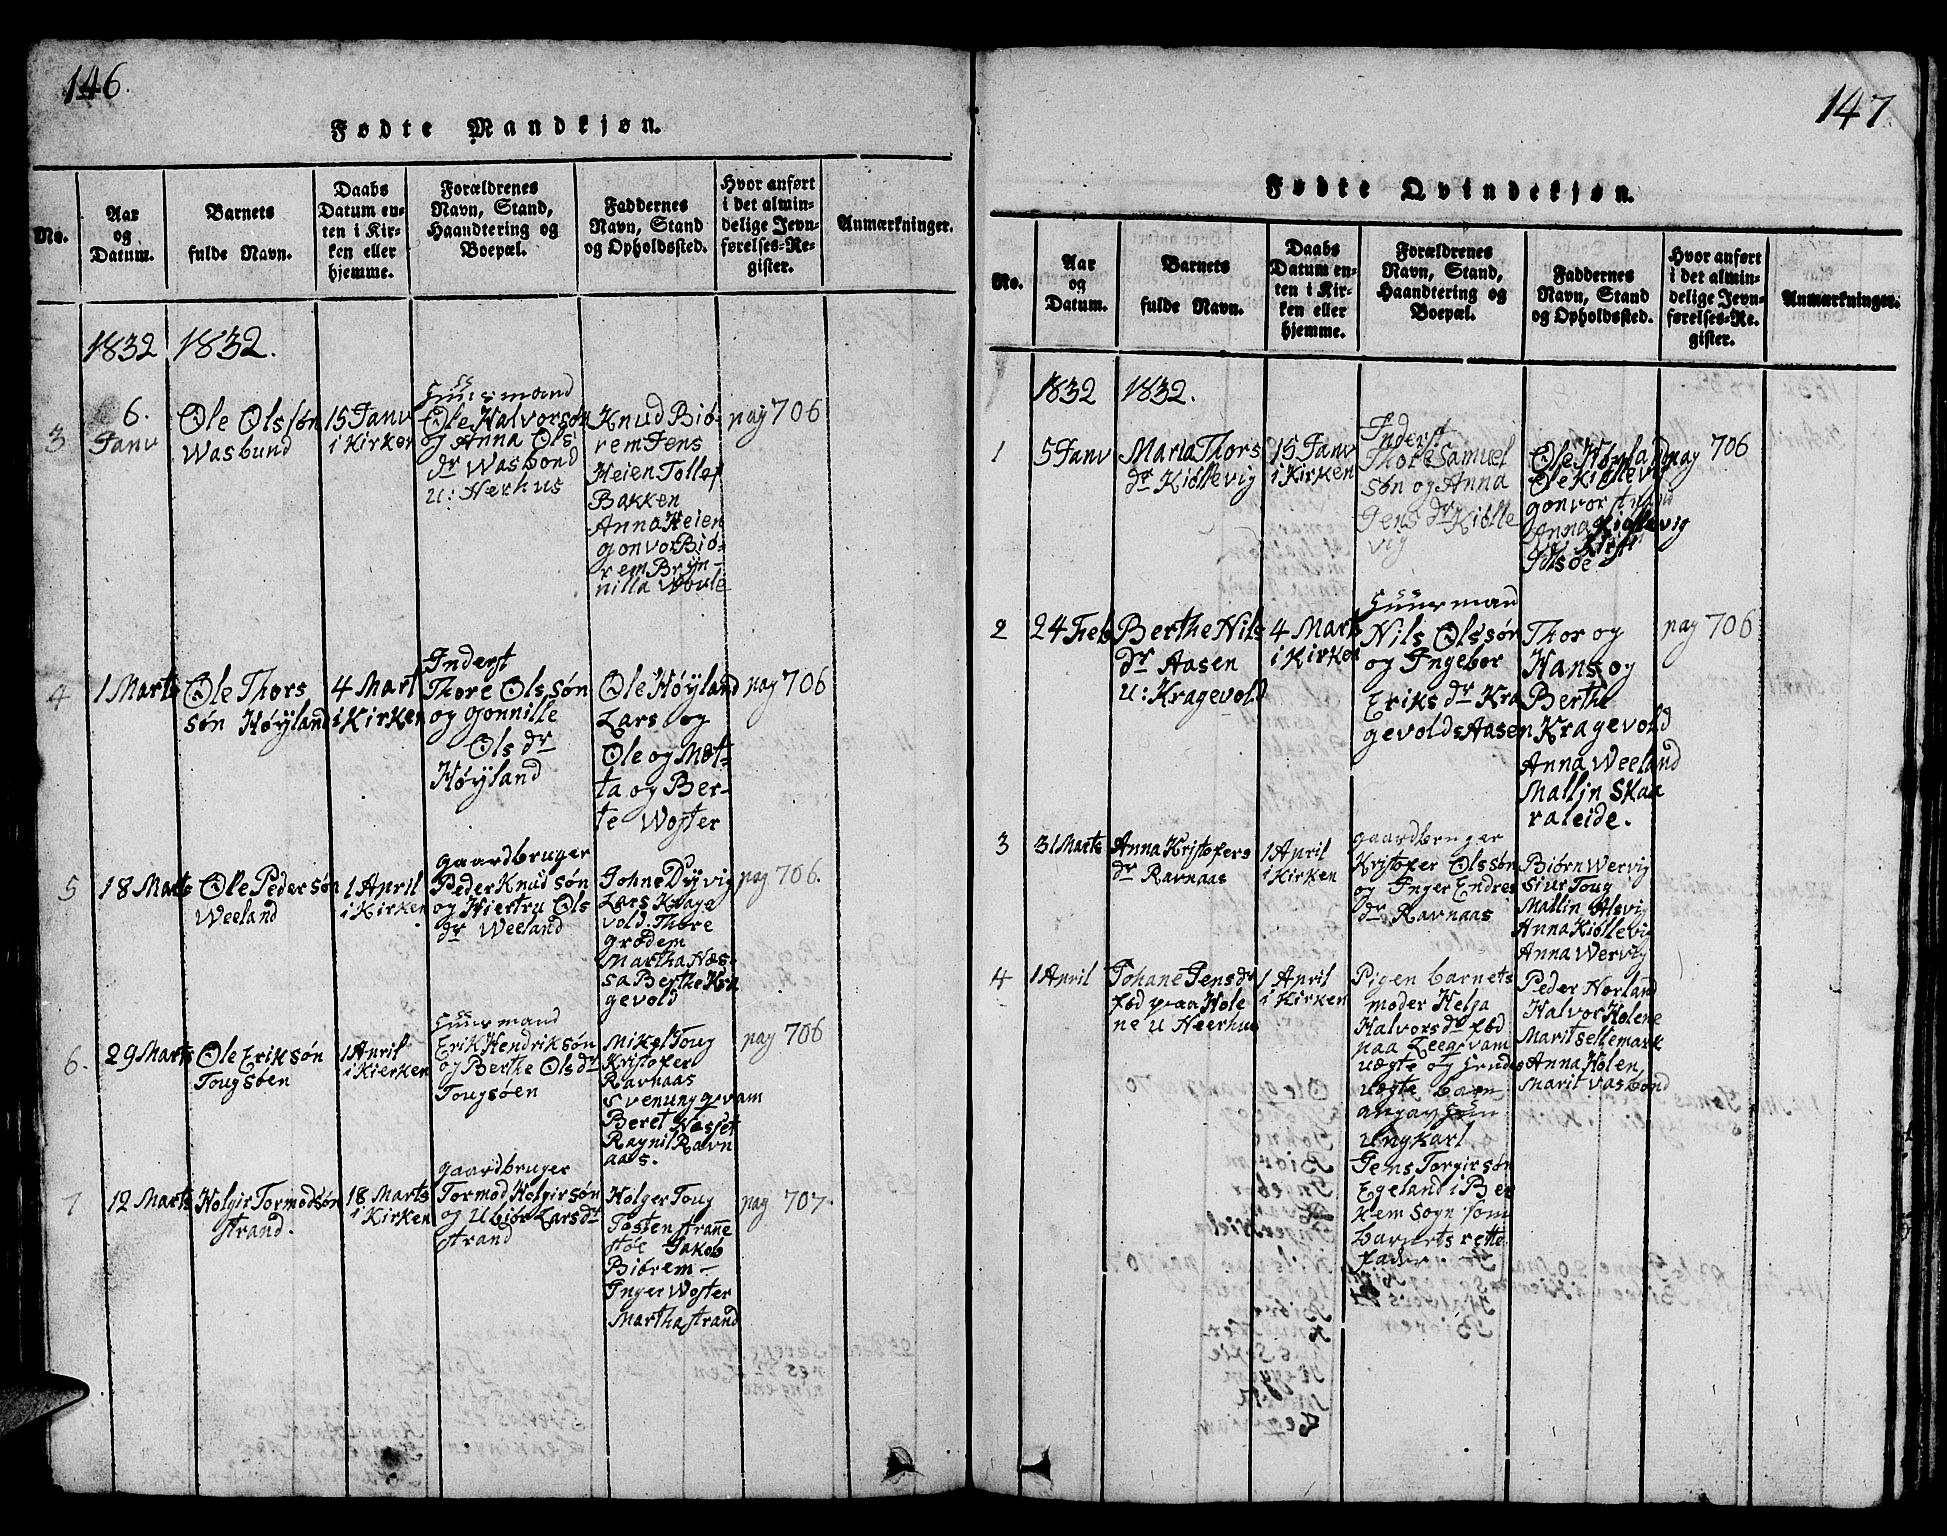 146.
Fødte Mandkjøn.
No.
Aar
og
Datum.
Barnets
fulde Navn.
Daabs
Datum en-
ten i Kir-
ken eller
hjemme.
Forældrenes
Navn, Stand,
Haandtering og
Boepæl.
Faddernes
Navn, Stand
og Opholdssted.
Hvor anført
i det almin-
delige Jevn-
førelses-Re-
gister.
Anmærkninger.
1832
1832.
3
6.
Janv
Ole Olssøn
Wasbund
15 Janv
i Kirken
Huusmand
Ole Halvorsøn
og Anna Ols
dr Wasbond
u: Nærhus
Knud Biø-
rem Jens
Heien Tollef
Bakken
Anna Heien
gonvor Biø-
rem Bryn-
nilla
pag 706
4
1 Marts
Ole Thors
søn Høyland
4 Mart
i Kirken
Inderst
Thore Olssøn
og gonnille
Ols dr
Høyland
Ole Høyland
Lars og
Ole og Met-
ta og Ber-
te Woster
pag 706
5
18 Marts
Ole Pedersøn
Weeland
1 April
i Kirken
gaardbruger
Peder Knudsøn
og Hiertru Ols
dr Weeland
Johne Dyvig
Lars Krage
vold. Thore
grødem
Martha Næs-
sa Berthe Kra
gevold
pag 706.
6.
29 Marts
Ole Eriksøn
Tougsøen
1 April
i Kierken
Huusmand
Erik Hendriksøn
og Berthe Ols dr
Tougsøen
Mikel Toug
Kristofer
Ravnaas
Svenung qvam
Beret Næsset
Ragnil Ravn
aas.
pag 706
7
12 Marts
Holgir Tormodsøn
strand.
18 Marts
i Kirken
gaardbruger
Tormod Holgirsøn
og Ubiør Lars dr
strand
Holger Toug
Tosten stranne
støe Jakob
Biørem
Inger Woster
Martha strand
pag 707.
147
Fødte Qvindekjøn.
No.
Aar
og
Datum.
Barnets
fulde Navn.
Daabs
Datum en-
ten i Kir-
ken eller
hjemme.
Forældrenes
Navn, Stand,
Haandtering og
Boepæl.
Faddernes
Navn, Stand
og Opholdssted.
Hvor anført
i det almin-
delige Jevn-
førelses-Re-
gister.
Anmærkninger.
1832
1832.
1
5 Janv
Maria Thors
dr Kiøllevig
15 Janv
i Kirken
Inderst
Thore Samuel
søn og Anna
Jens dr Kiølle
vig
Ole Høyland
Ole Kiøllevig
gonvor strand
Anna Kiøllevig
Idsøe
pag 706
2
24 Feb
Berthe Nils
dr Aasen
u: Kragevold
4 Marts
i Kirken
Huusman
Nils Olssøn
og Ingebor
Eriks dr Kra
gevolds Aasen
Thor og
Hans og
Berthe
Kragevold
Anna Weeland
Mallin Skaa
raleide.
pag 706
3
31 Marts
Anna Kristofers
dr Ravnaas
1 April
i Kirken
gaardbruger
Kristofer Olssøn
og Inger Endres
dr Ravnaas
Biørn Wervig
Siur Toug
Mallin Alsvig
Anna Kiøllevig
Anna Wervig
4
1 April
Johane Jens dr
fød paa Hole
ne u Neerhus
1 April
i Kirken
Pigen barnets
moder Helja
Halvors dr fød
paa Leeqvam
uægte og hendes
uægte barn
angav som
ungkarl
Jens Torgirsøn
Egeland i Ber
kem Sogn som
barnets rette
fader.
Peder Nørland
Halvor Holene
Marit sellemark
Anna Holen,
Marit Vasbond